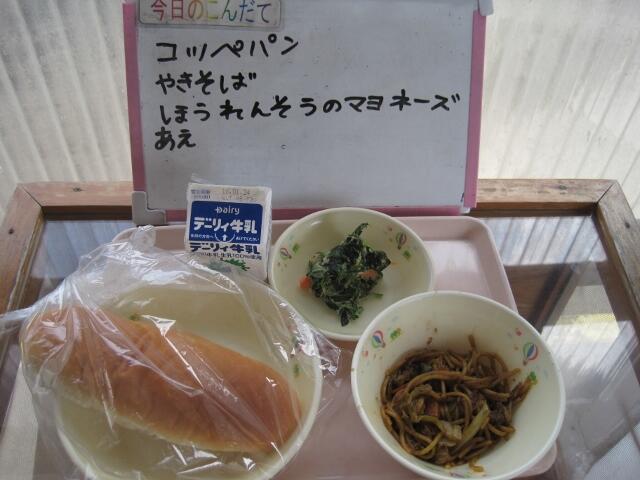 今日のこんだて
コッペパン
やきそば
ほうれんそうのマヨネーズ
あえ
16.01.24
Dairy
デーリィ牛乳
デーリィ牛乳